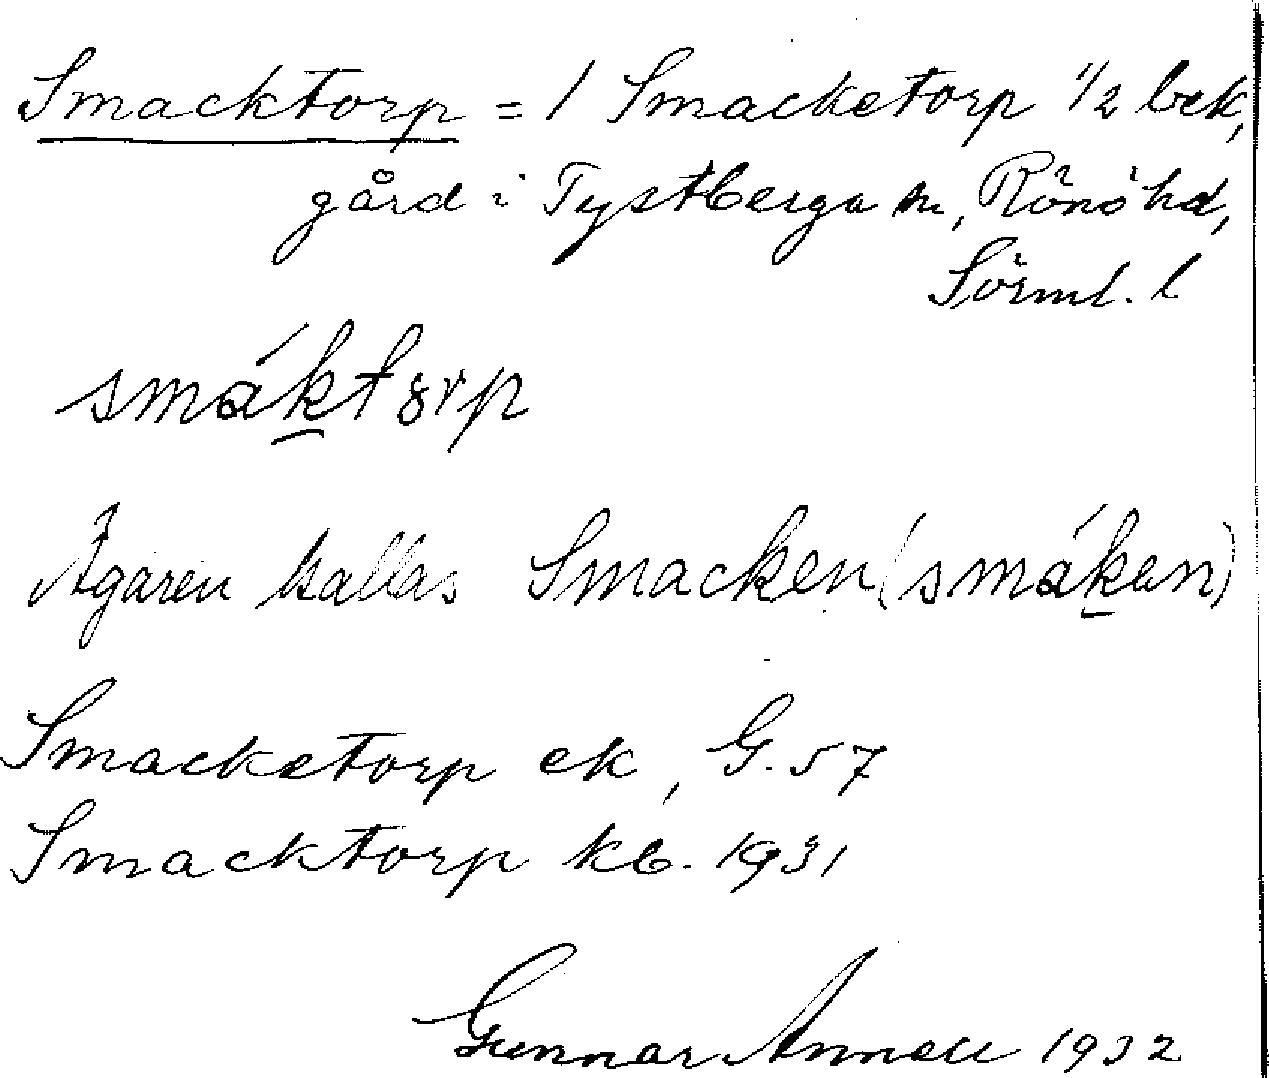 Smacktorp = 1 Smacketorp 1/2 brk,
gård i Tystberga sn, Rönö hd,
Sörml. l
smáktørp
Ägaren kallas Smacken (smáken)
Smacketorp ek, G. 57
Smacktorp kb. 1931
Gunnar Annell 1932